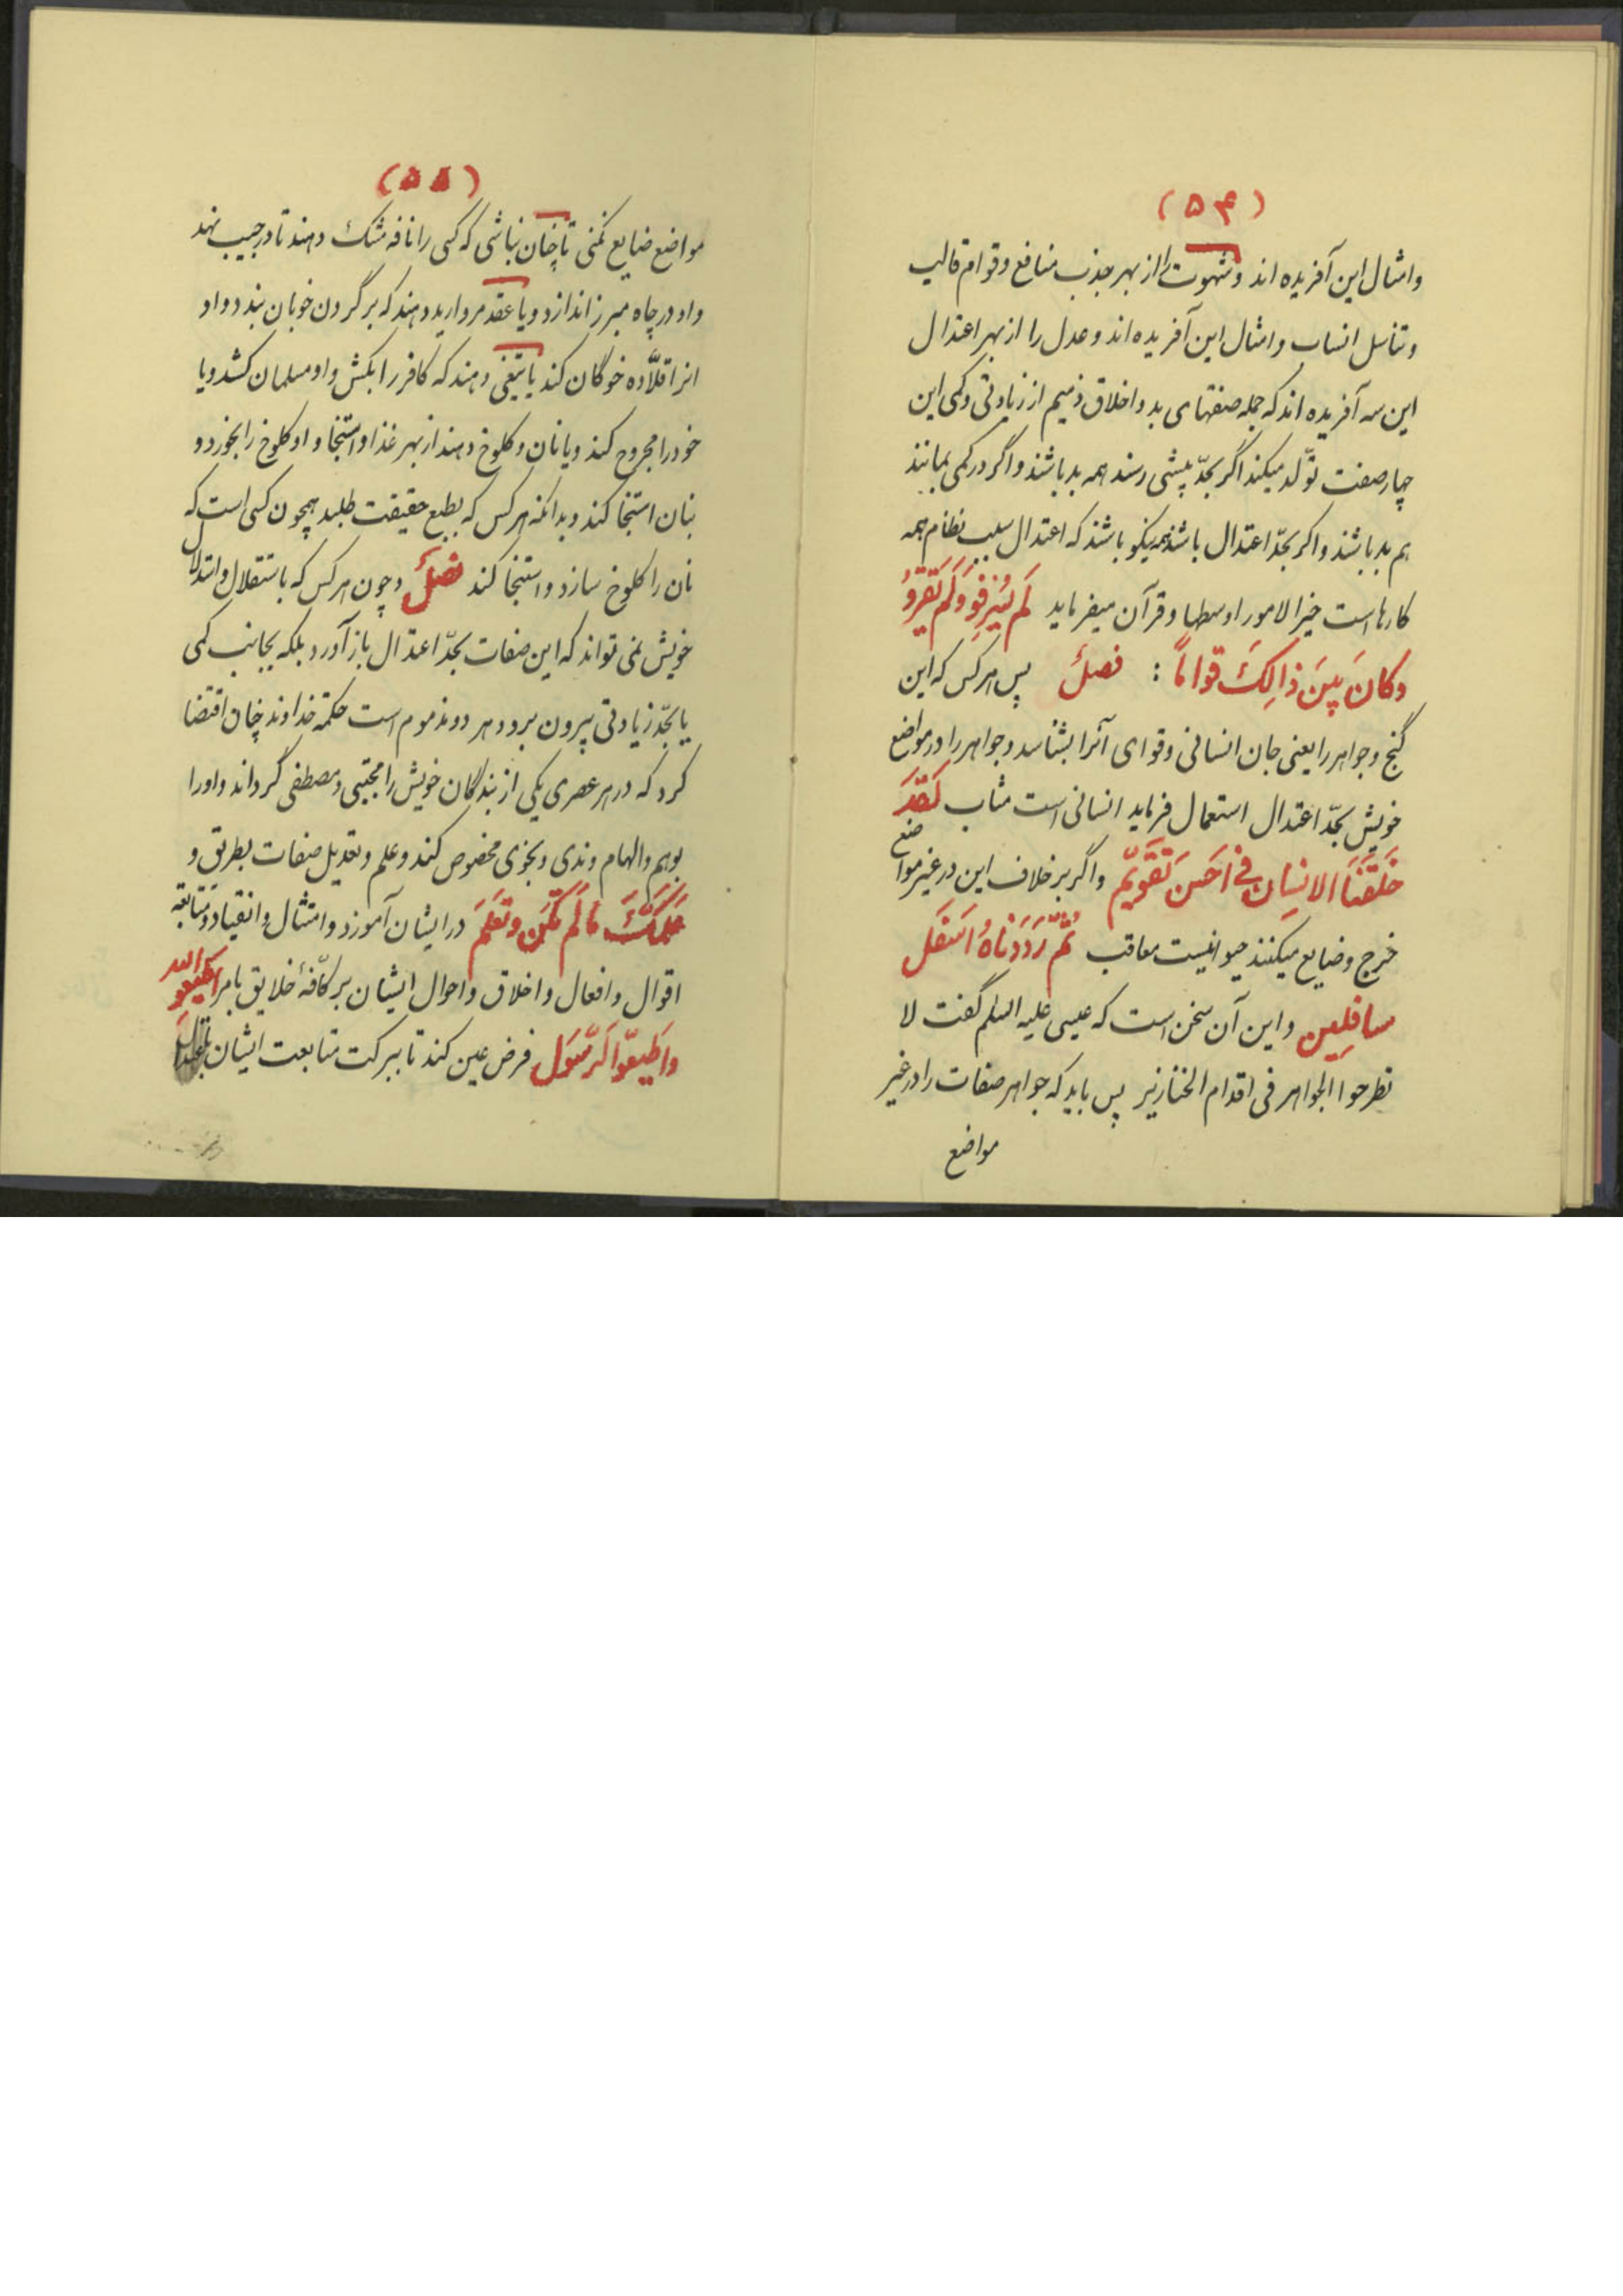 (۵۴)
وامثال این آفریده اند وشهوت را از بهر جذب منافع وقوام قالب
وتناسل انساب وامثال این آفریده اند وعدل را از بهر اعتدال
این سه آفریده اند که جمله صفتهای بد واخلاق ذمیم از زیادتی وکمی این
چهار صفت تولّد میکند اگر بحدّ بیشی رسند همه بد باشند واگر در کمی بمانند
هم بد باشند واکر بحدّ اعتدال باشند همه نیکو باشند که اعتدال سبب نظام همه
کارهاست خیر الامور اوسطها وقرآن میفرماید لَم یُسْرِفُو وَلَم یَقْتِرُو
وکانَ بَینَ ذالِکَ قواماً : فصلٌ پس هر کس که این
گنج وجواهر را یعنی جان انسانی وقوای آنرا بشناسد وجواهر را در مواضع
خویش بحدّ اعتدال استعمال فرماید انسانی است مثاب لَقَد
خَلَقنَا الانسان فی اَحسَن تَقویم واگر برخلاف این در غیر مواضع
خرج وضایع میکنند حیوانیست معاقب ثُمَّ رَدَدناهُ اَسفَل
سافِلِین واین آن سخن است که عیسی علیه السلم گفت لا
تطرحوا الجواهر فی اقدام الخنازیر پس باید که جواهر صفات را در غیر
مواضع
(۵۵)
مواضع ضایع نکنی تا چنان نباشی که کسی را نافه مشک دهند تا در جیب نهد
واو در چاه مبرز اندازد ویا عقد مروارید دهند که بر گردن خوبان بندد واو
انرا قلّاده خوگان کند یا تیغی دهند که کافر را بکش واو مسلمان کشد ویا
خود را مجروح کند ویا نان وکلوخ دهند از بهر غذا واستنجا واو کلوخ را بخورد و
بنان استنجا کند وبدانکه هر کس که بطبع حقیقت طلبد همچون کسی است که
نان را کلوخ سازد واستنجا کند فصلٌ وچون هر کس که باستقلال واستدلال
خویش نمی تواند که این صفات بحدّ اعتدال باز آورد بلکه بجانب کمی
یا بحدّ زیادتی بیرون برد وهر دو مذموم است حکمة خداوند چنان اقتضا
کرد که در هر عصری یکی از بندگان خویش را مجتبی ومصطفی گرداند واو را
بوهم والهام وندی وبجزی مخصوص کند وعلم وتعدیل صفات بطریق و
عَلَّمَکَ مَا لَم تَکُن وتَعلَم در ایشان آموزد وامتثال وانقیاد ومتابعة
اقوال وافعال واخلاق واحوال ایشان بر کافّهٔ خلایق بامر اطیعو الله
واَطیعُوا الرَّسُول فرض عین کند تا ببرکت متابعت ایشان باعتدال